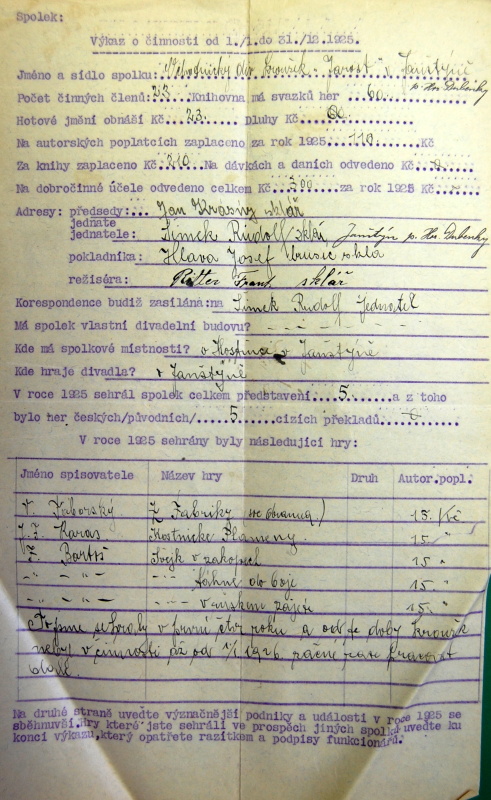 Spolek:
Výkaz o činnosti od 1./1.do 31./12.1925.
Jméno a sídlo spolku: div. kroužek "Jarost" v Janštýně
p. Hor. Dubenky
Počet činných členů: 23 Knihovna má svazků her 60.
Hotové jmění obnáší Kč 23. Dluhy Kč 00
Na autorských poplatcích zaplaceno za rok 1925 110 Kč
Za knihy zaplaceno Kč 210 Na dávkách a daních odvedeno Kč 0
Na dobročinné účele odvedeno celkem Kč 300 za rok 1925 Kč
Adresy: předsedy: Jan Krasny sklář
jednate
jednatele: Šimek Rudolf sklář Janštýn p. Hor. Dubenky
pokladníka: Hlava Josef brusič skla
režiséra: Ritter Frant. sklář
Korespondence budiž zasílána: na Šimek Rudolf Jednatel
Má spolek vlastní divadelní budovu? - - - -
Kde má spolkové místnosti? v Hostinci v Janštýně
Kde hraje divadla? v Janštýně
V roce 1925 sehrál spolek celkem představení 5. a z toho
bylo her českých/původních/ 5 cizích překladů 0
V roce 1925 sehrány byly následující hry:
Jméno spisovatele Název hry Druh Autor.popl.
F. Táborský Z Fabriky 15. Kč
J. F. Karas Kostnické Plameny. 15 "
F. Bartoš Švejk v zákopech 15 "
-"- -"- -"- táhne do boje 15. "
-"- -"- -"- v ruském zajetí 15. "
Tyto jsme sehráli v první čtvr roku a od té doby Kroužek
nebyl v činnosti až od 1/1 1926. začne zase pracovat
Na druhé straně uveďte význačnější podniky a události v roce 1925 se
sběhnuvší. Hry které jste sehráli ve prospěch jiných spolků uveďte ku
konci výkazu, který opatřete razítkem a podpisy funkcionářů.